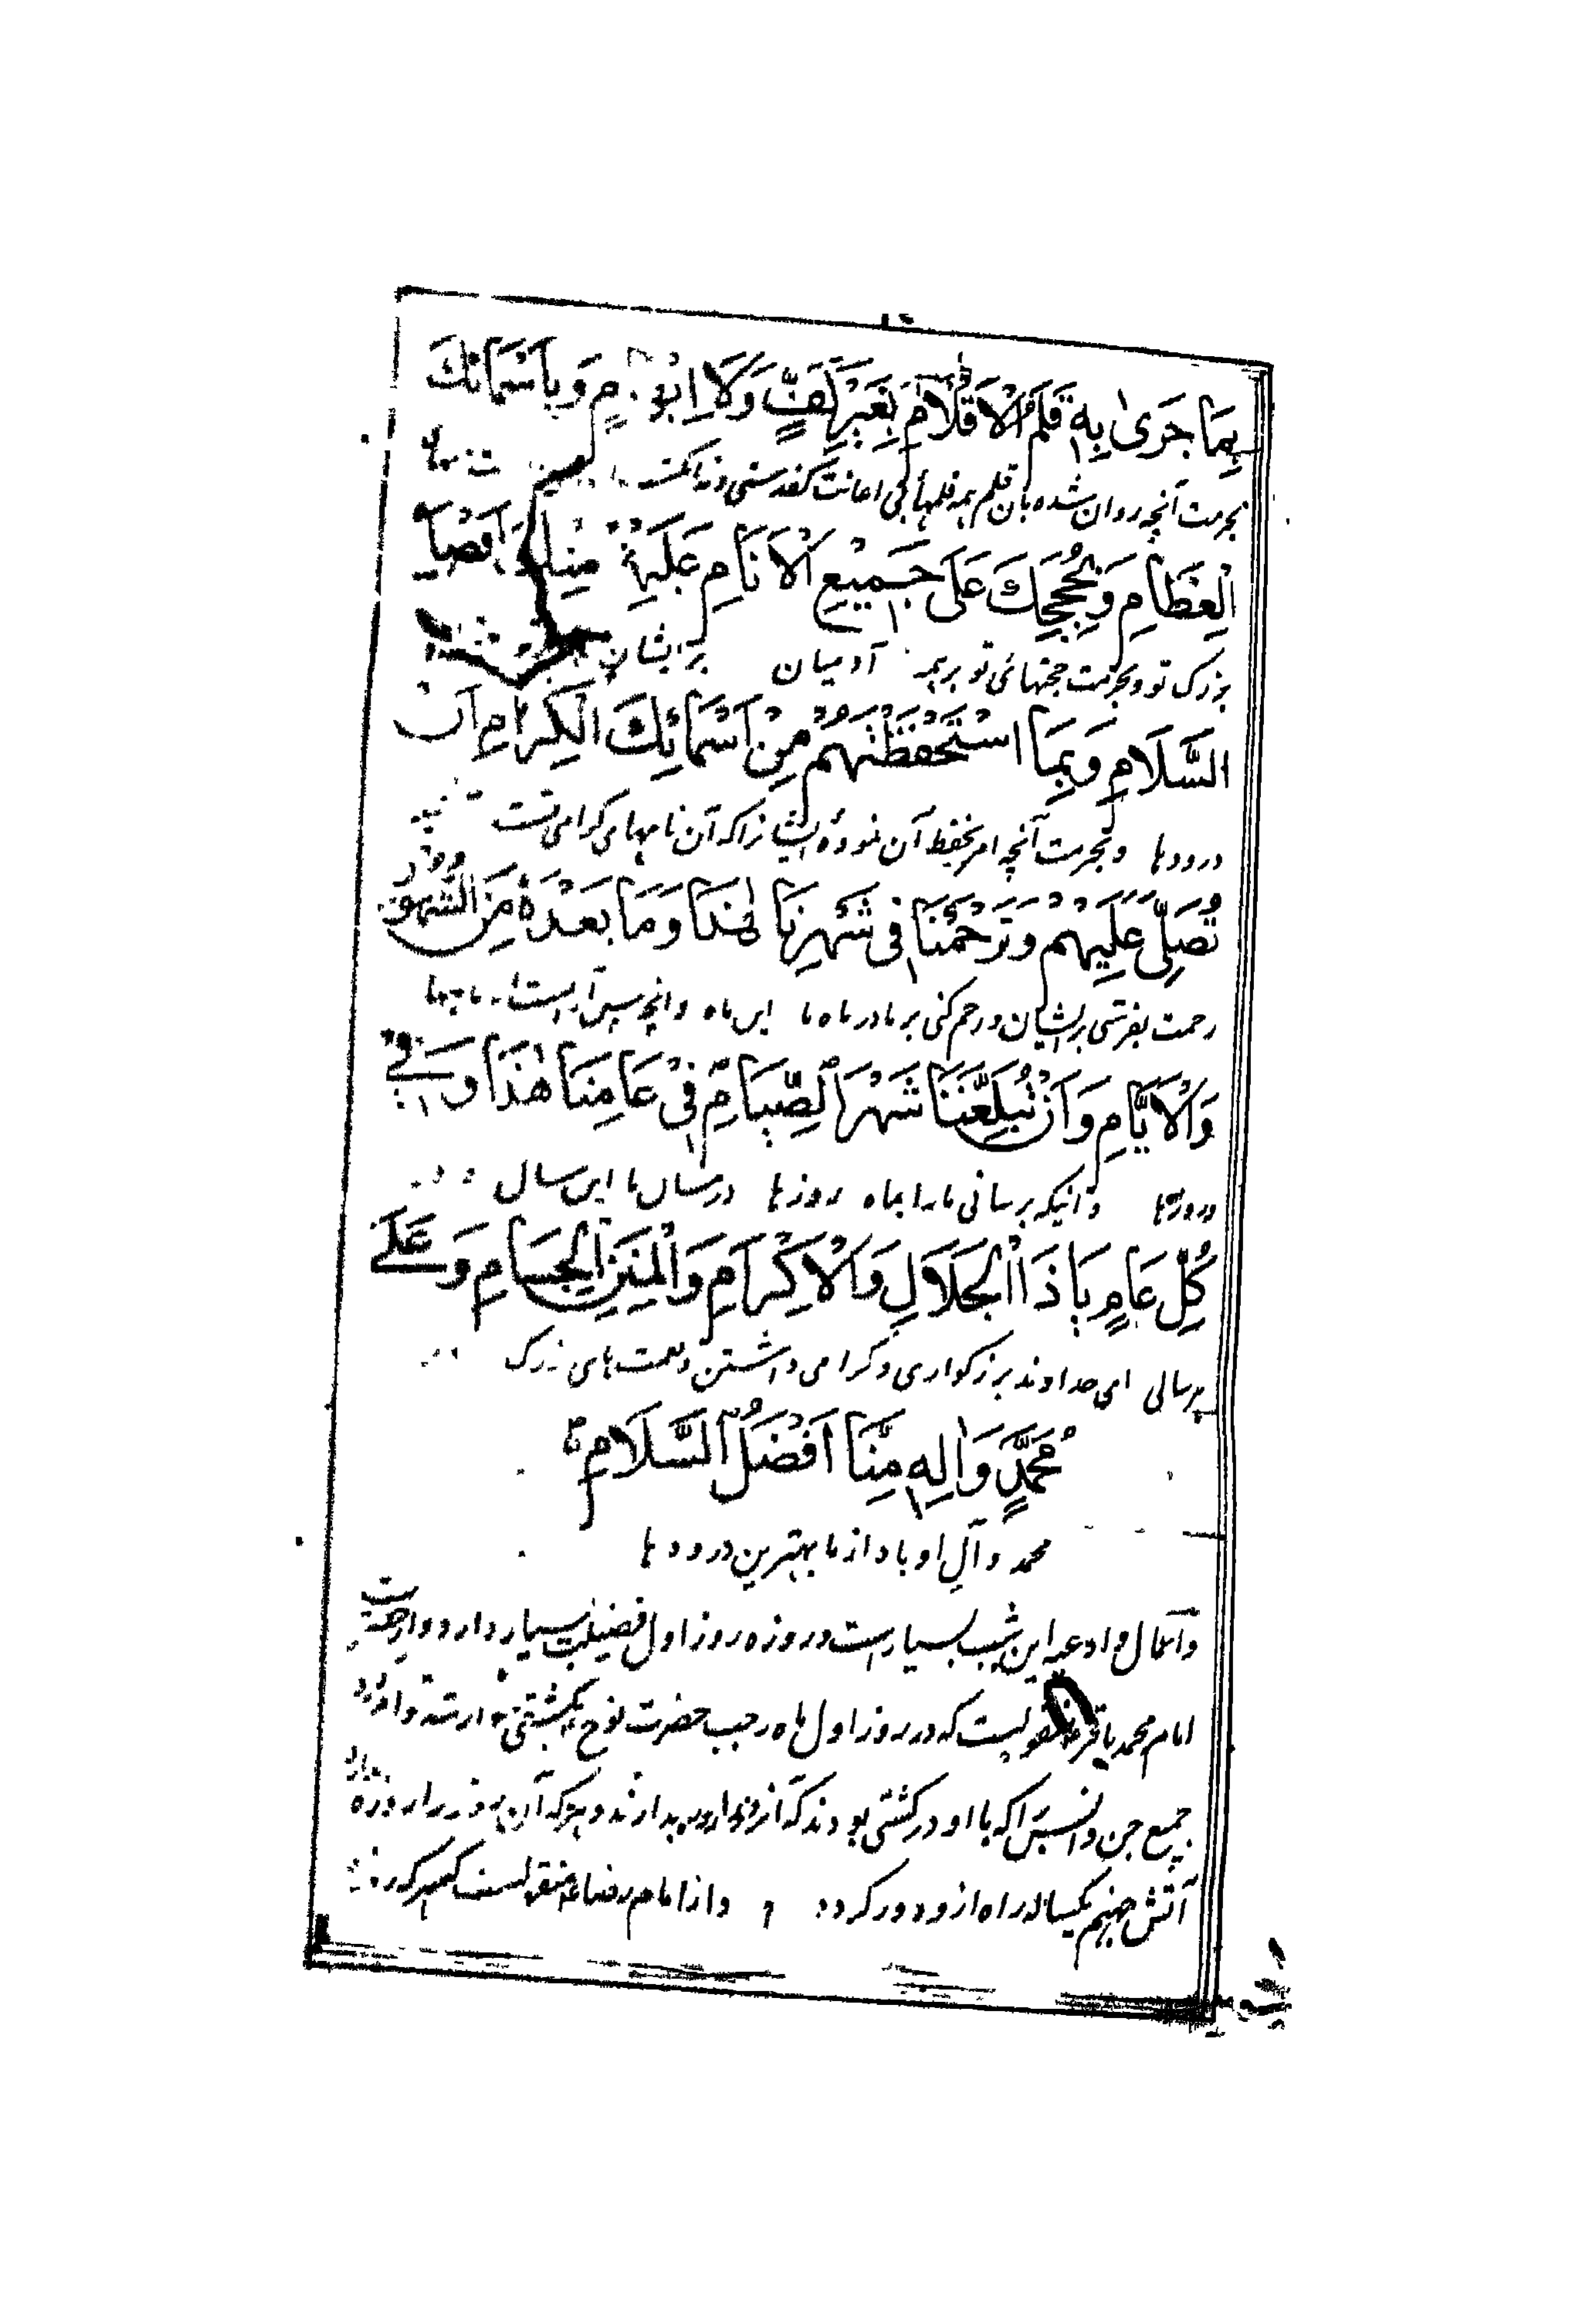 بِمَا جَرىٰ بِهٖ قَلَمُ الْاَقْلَامِ بِغَيْرِ كَفٍّ وَلَا اِبْهَامٍ وَبِاَسْمَائِكَ
بحرمت آنچه روان شده بآن قلم همه قلمها بی اعانت کف دستی و نه انگشت
الْعِظَامِ وَبِحُجَجِكَ عَلٰى جَمِيْعِ الْاَنَامِ عَلَيْهِمْ مِنْكَ اَفْضَلُ
بزرگ تو و بحرمت حجتهائی تو بر همه آدمیان بر ایشان
السَّلَامِ وَبِمَا اسْتَحْفَظْتَهُمْ مِنْ اَسْمَائِكَ الْكِرَامِ اَنْ
درودها و بحرمت آنچه امر بحفظ آن نمودهٔ ایشانرا که آن نامهای گرامی تست
تُصَلِّىَ عَلَيْهِمْ وَتَرْحَمْنَا فِى شَهْرِنَا هٰذَا وَمَا بَعْدَهٗ مِنَ الشُّهُوْرِ
رحمت بفرستی بر ایشان و رحم کنی بر ما در ماه ما این ماه و آنچه پس از آنست از ماهها
وَالْاَيَّامِ وَاَنْ تُبَلِّغَنَا شَهْرَ الصِّيَامِ فِىْ عَامِنَا هٰذَا وَفِىْ
و روزها و اینکه برسانی ما را بماه روزها در سال ما این سال و در
كُلِّ عَامٍ يَا ذَا الْجَلَالِ وَالْاِكْرَامِ وَالْمِنَنِ الْجِسَامِ وَعَلٰى
هر سالی ای خداوند بزرگواری و گرامی داشتن و نعمت های بزرگ
مُحَمَّدٍ وَاٰلِهٖ مِنَّا اَفْضَلُ السَّلَامِ
محمد و آلِ او باد از ما بهترین درود ها
و اعمال و ادعیه این شب بسیار است و روزه روز اول فضیلت بسیار دارد و از حضرت
امام محمد باقرؑ منقولست که در روز اول ماه رجب حضرت نوحؑ بکشتی سوار شد و امر کرد
جمیع جن و انس را که با او در کشتی بودند که آنروز را روزه بدارند و هر که آن روز را روزه بدارد
آتش جهنم یکساله راه از و دور گردد و از امام رضاؑ منقولست که هر که روز